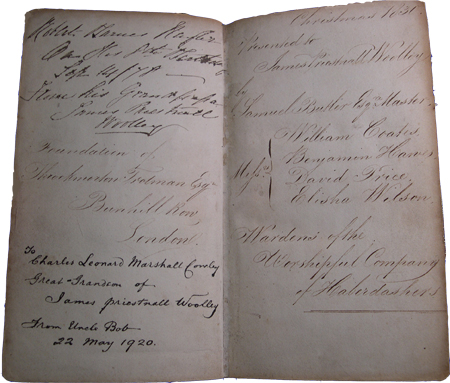 Robert James
On His
Sep 14 1878
From his Grandpapa
James Priestnall
Woolley
Foundation of
Throckmorton Trotman Esqr
Bunhill Row,
London.
To
Charles Leonard Marshall Cowley
Great-Grandson of
James Priestnall Woolley
From Uncle Bob
22 May 1920.
Christmas
Presented to
James Priestnall Woolley,
by
Samuel Butler Esqre Master,
William Coates,
Benjamin Hawes,
Messrs
David Price,
Elisha Wilson
Wardens of the
Worshipful Company
of Haberdashers